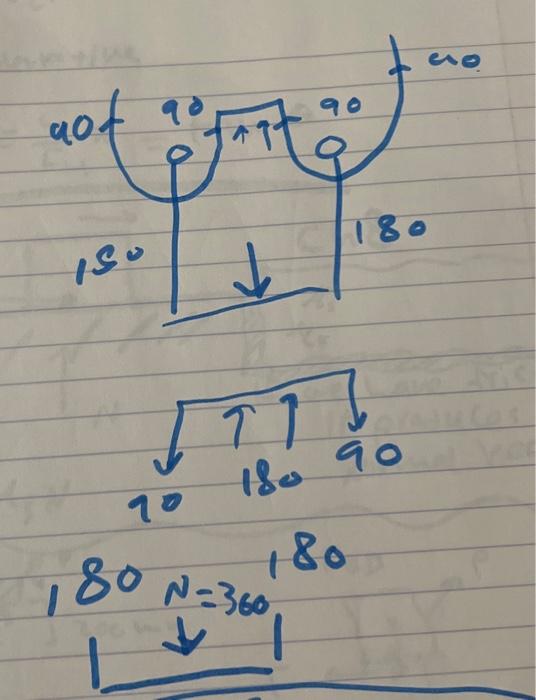 90 90 90 90
180 180
90 180 90
180 N=360 180